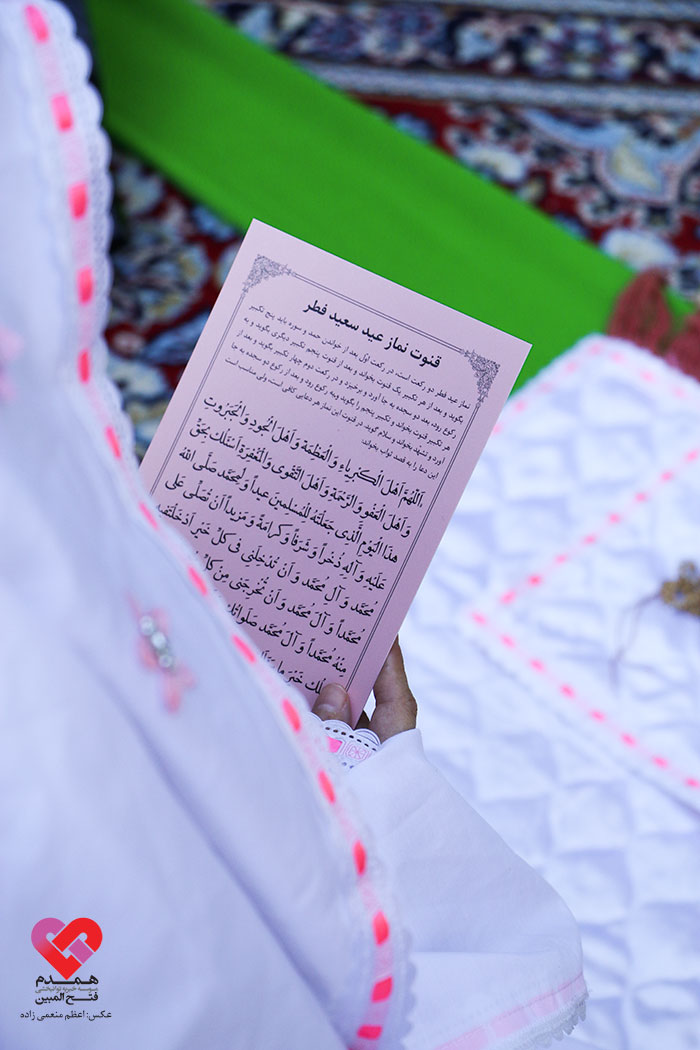 قنوت نماز عید سعید فطر
نماز عید فطر دو رکعت است، در رکعت اول بعد از خواندن حمد و سوره باید پنج تکبیر
بگوید و بعد از هر تکبیر یک قنوت بخواند و بعد از قنوت پنجم تکبیر دیگری بگوید و به
رکوع رود، بعد دو سجده به جا آورد و برخیزد و در رکعت دوم چهار تکبیر بگوید و بعد از
هر تکبیر قنوت بخواند و تکبیر پنجم را بگوید وبه رکوع رود و بعد از رکوع دو سجده به جا
آورد و تشهد بخواند و سلام گوید. در قنوت این نماز هر دعایی کافی است، ولی مناسب است
این دعا را به قصد ثواب بخواند:
اَللّهُمَّ اَهْلَ الْكِبْرِياءِ وَ الْعَظَمَةِ وَ اَهْلَ الْجُودِ وَ الْجَبَرُوتِ
وَ اَهْلَ الْعَفْوِ وَ الرَّحْمَةِ وَ اَهْلَ التَّقْوى وَ الْمَغْفِرَةِ اَسْئَلُكَ بِحَقِّ
هذَا الْيَوْمِ الَّذى جَعَلْتَهُ لِلْمُسْلِمينَ عيداً وَ لِمُحَمَّدٍ صَلَّى اللهُ
عَلَيْهِ وَ آلِهِ ذُخْراً وَ شَرَفاً وَ كَرامَةً وَ مَزيداً اَنْ تُصَلِّىَ عَلى
مُحَمَّدٍ وَ آلِ مُحَمَّدٍ وَ اَنْ تُدْخِلَنى فى كُلِّ خَيْرٍ اَدْخَلْتَ فيهِ
مُحَمَّداً وَ آلَ مُحَمَّدٍ وَ اَنْ تُخْرِجَنى مِنْ كُلِّ
مِنْهُ مُحَمَّداً وَ آلَ مُحَمَّدٍ صَلَواتُكَ
خَيْرَ ما
همدم
موسسه خیریه توانبخشی
فتح المبین
عکس: اعظم منعمی زاده